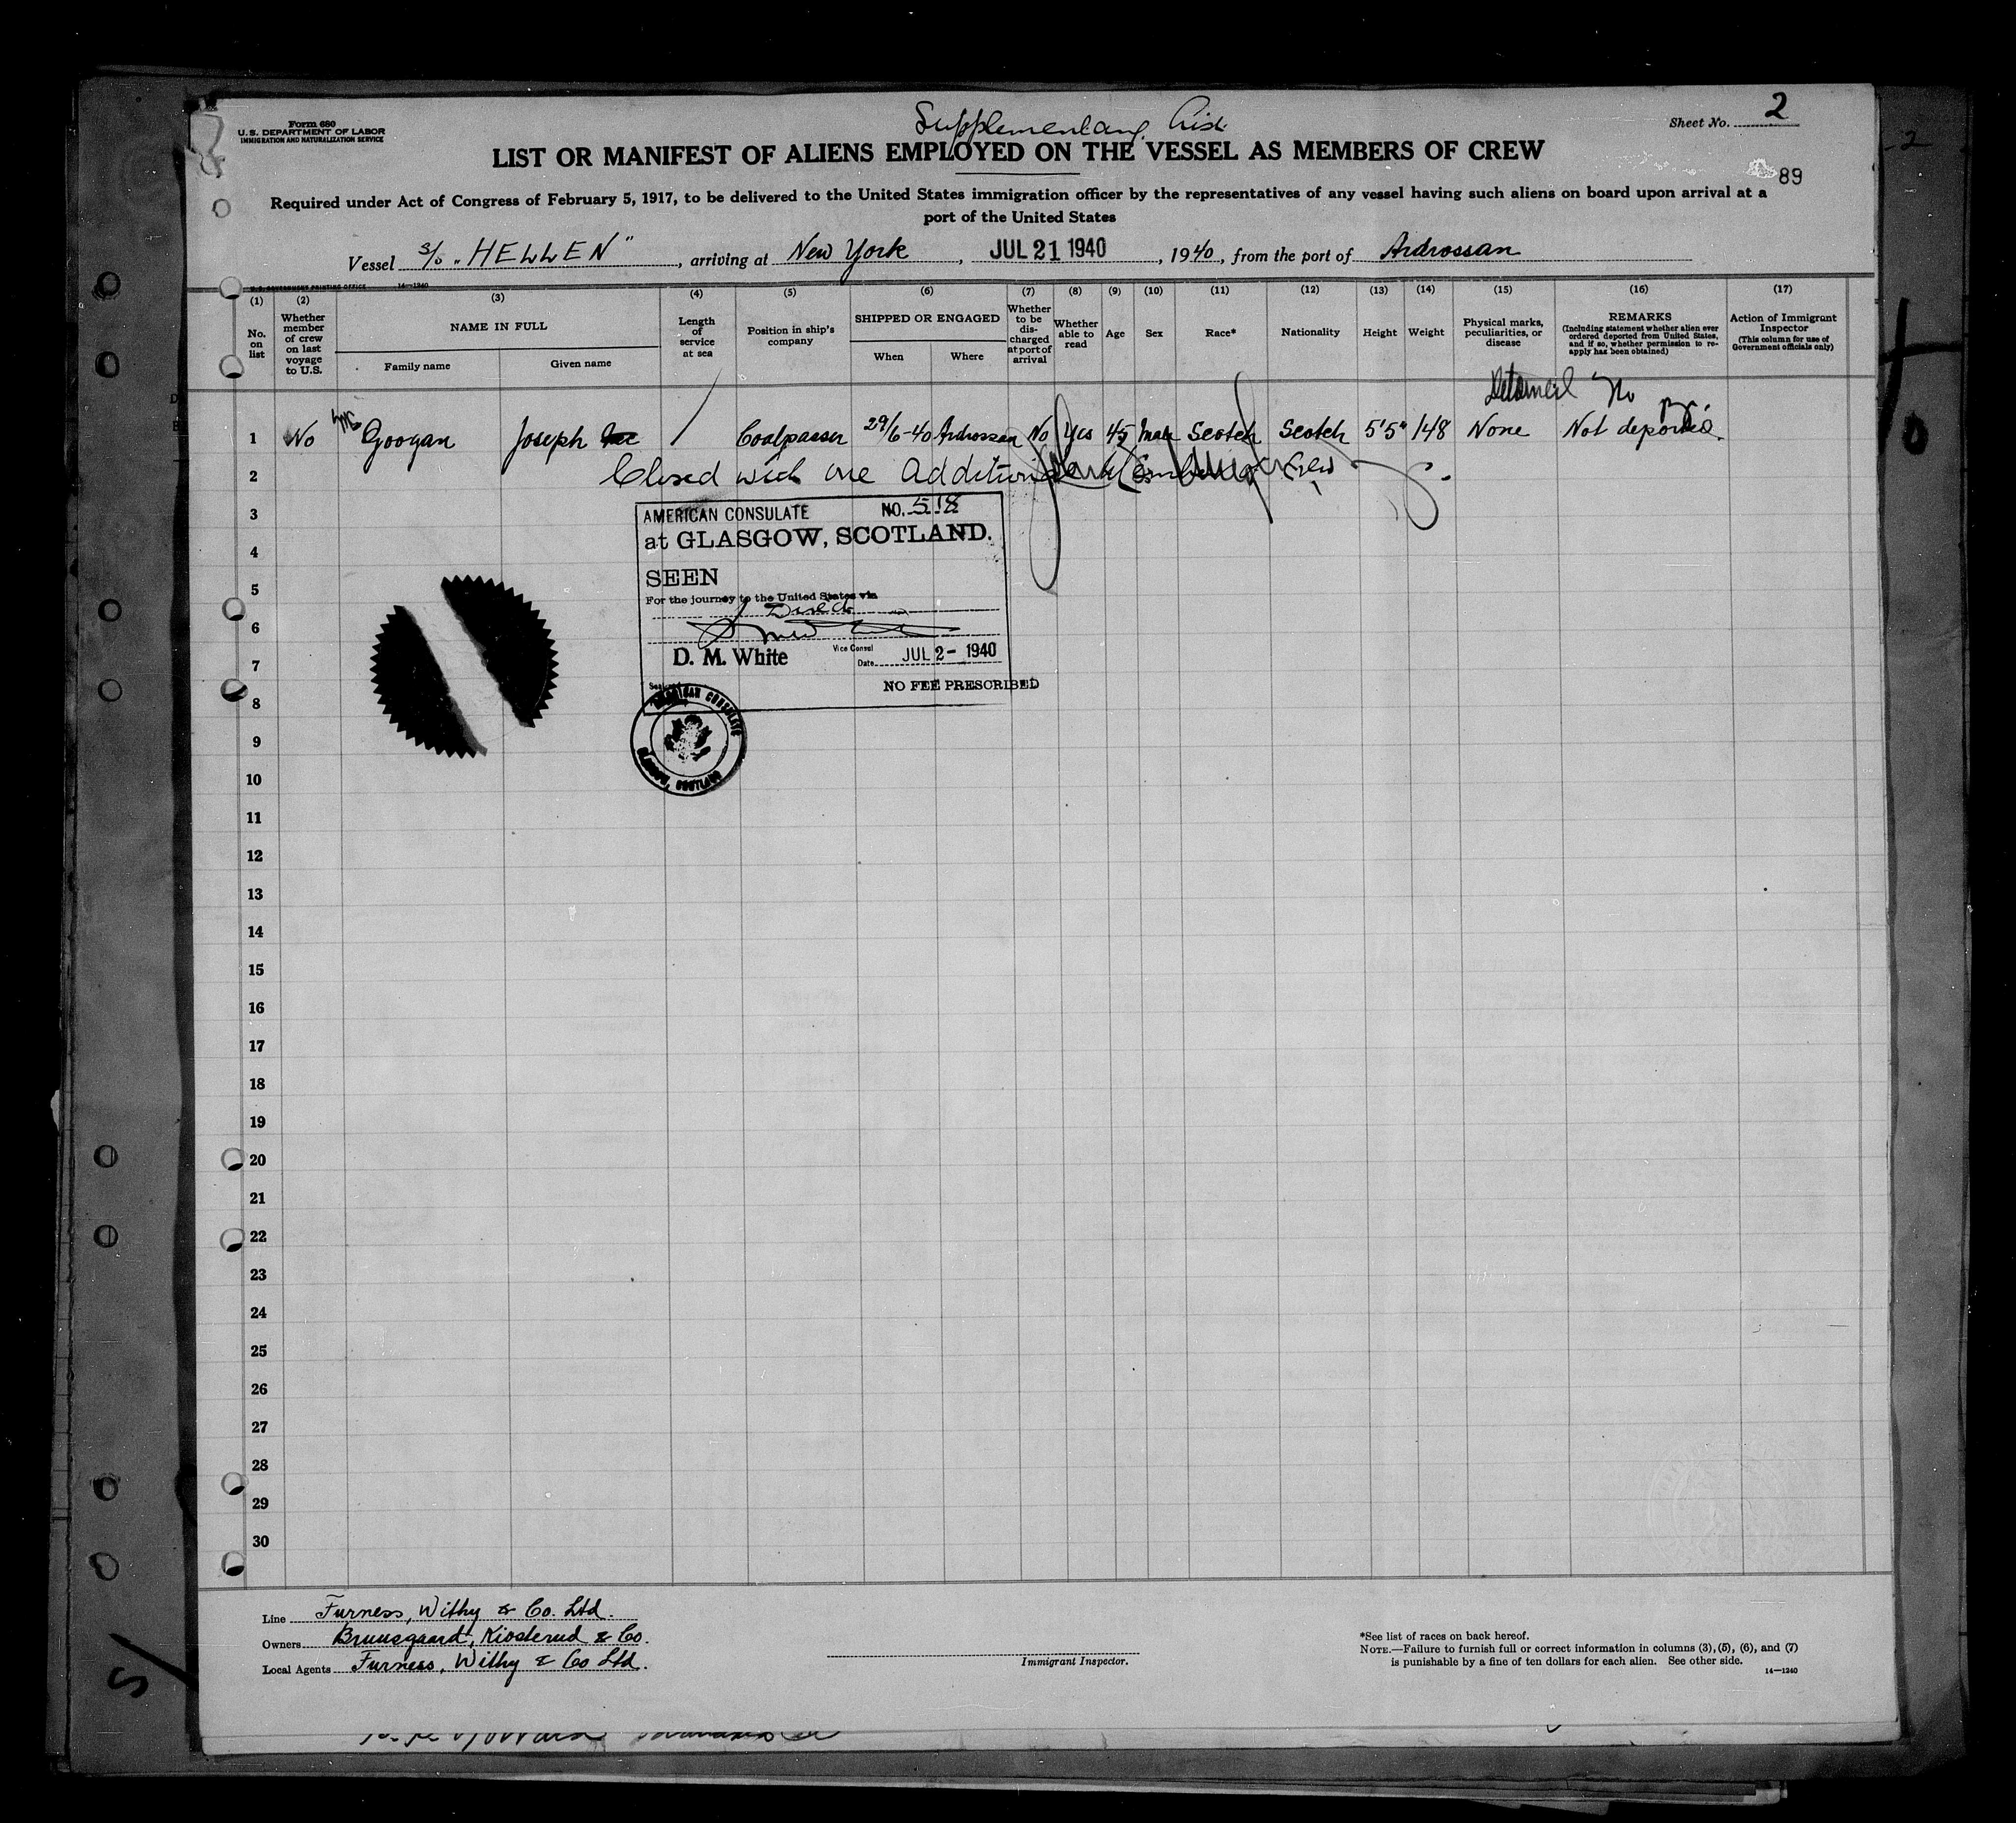 Form 680
U.S. DEPARTMENT OF LABOR
IMMIGRATION AND NATURALIZATION SERVICE
Supplementary List
Sheet No. 2
LIST OR MANIFEST OF ALIENS EMPLOYED ON THE VESSEL AS MEMBERS OF CREW
89
Required under Act of Congress of February 5, 1917, to be delivered to the United States immigration officer by the representatives of any vessel having such aliens on board upon arrival at a
port of the United States
Vessel S/S "HELLEN", arriving at New York, JUL 21 1940, 1940, from the port of Ardrossan
U. S. GOVERNMENT PRINTING OFFICE 14—1240
(1) No. on list
(2) Whether member of crew on last voyage to U.S.
(3) NAME IN FULL Family name Given name
(4) Length of service at sea
(5) Position in ship's company
(6) SHIPPED OR ENGAGED When Where
(7) Whether to be discharged at port of arrival
(8) Whether able to read
(9) Age
(10) Sex
(11) Race*
(12) Nationality
(13) Height
(14) Weight
(15) Physical marks, peculiarities, or disease
(16) REMARKS (Including statement whether alien ever ordered deported from United States, and if so, whether permission to reapply has been obtained)
(17) Action of Immigrant Inspector (This column for use of Government officials only)
Detained No
1 No Mc Googan Joseph / Coalpasser 29/6-40 Ardrossan No Yes 45 Male Scotch Scotch 5'5" 148 None Not deported.
2 Closed with one Additional Member of Crew
3
4
5
6
7
8
9
10
11
12
13
14
15
16
17
18
19
20
21
22
23
24
25
26
27
28
29
30
AMERICAN CONSULATE NO. 518
at GLASGOW, SCOTLAND.
SEEN
For the journey to the United States via
Direct
D. M. White Vice Consul
Date JUL 2 - 1940
NO FEE PRESCRIBED
AMERICAN CONSULATE
GLASGOW, SCOTLAND
Line Furness, Withy & Co. Ltd.
Owners Bruusgaard, Kiosterud & Co.
Local Agents Furness, Withy & Co Ltd.
Immigrant Inspector.
*See list of races on back hereof.
NOTE.—Failure to furnish full or correct information in columns (3), (5), (6), and (7)
is punishable by a fine of ten dollars for each alien. See other side.
14—1240